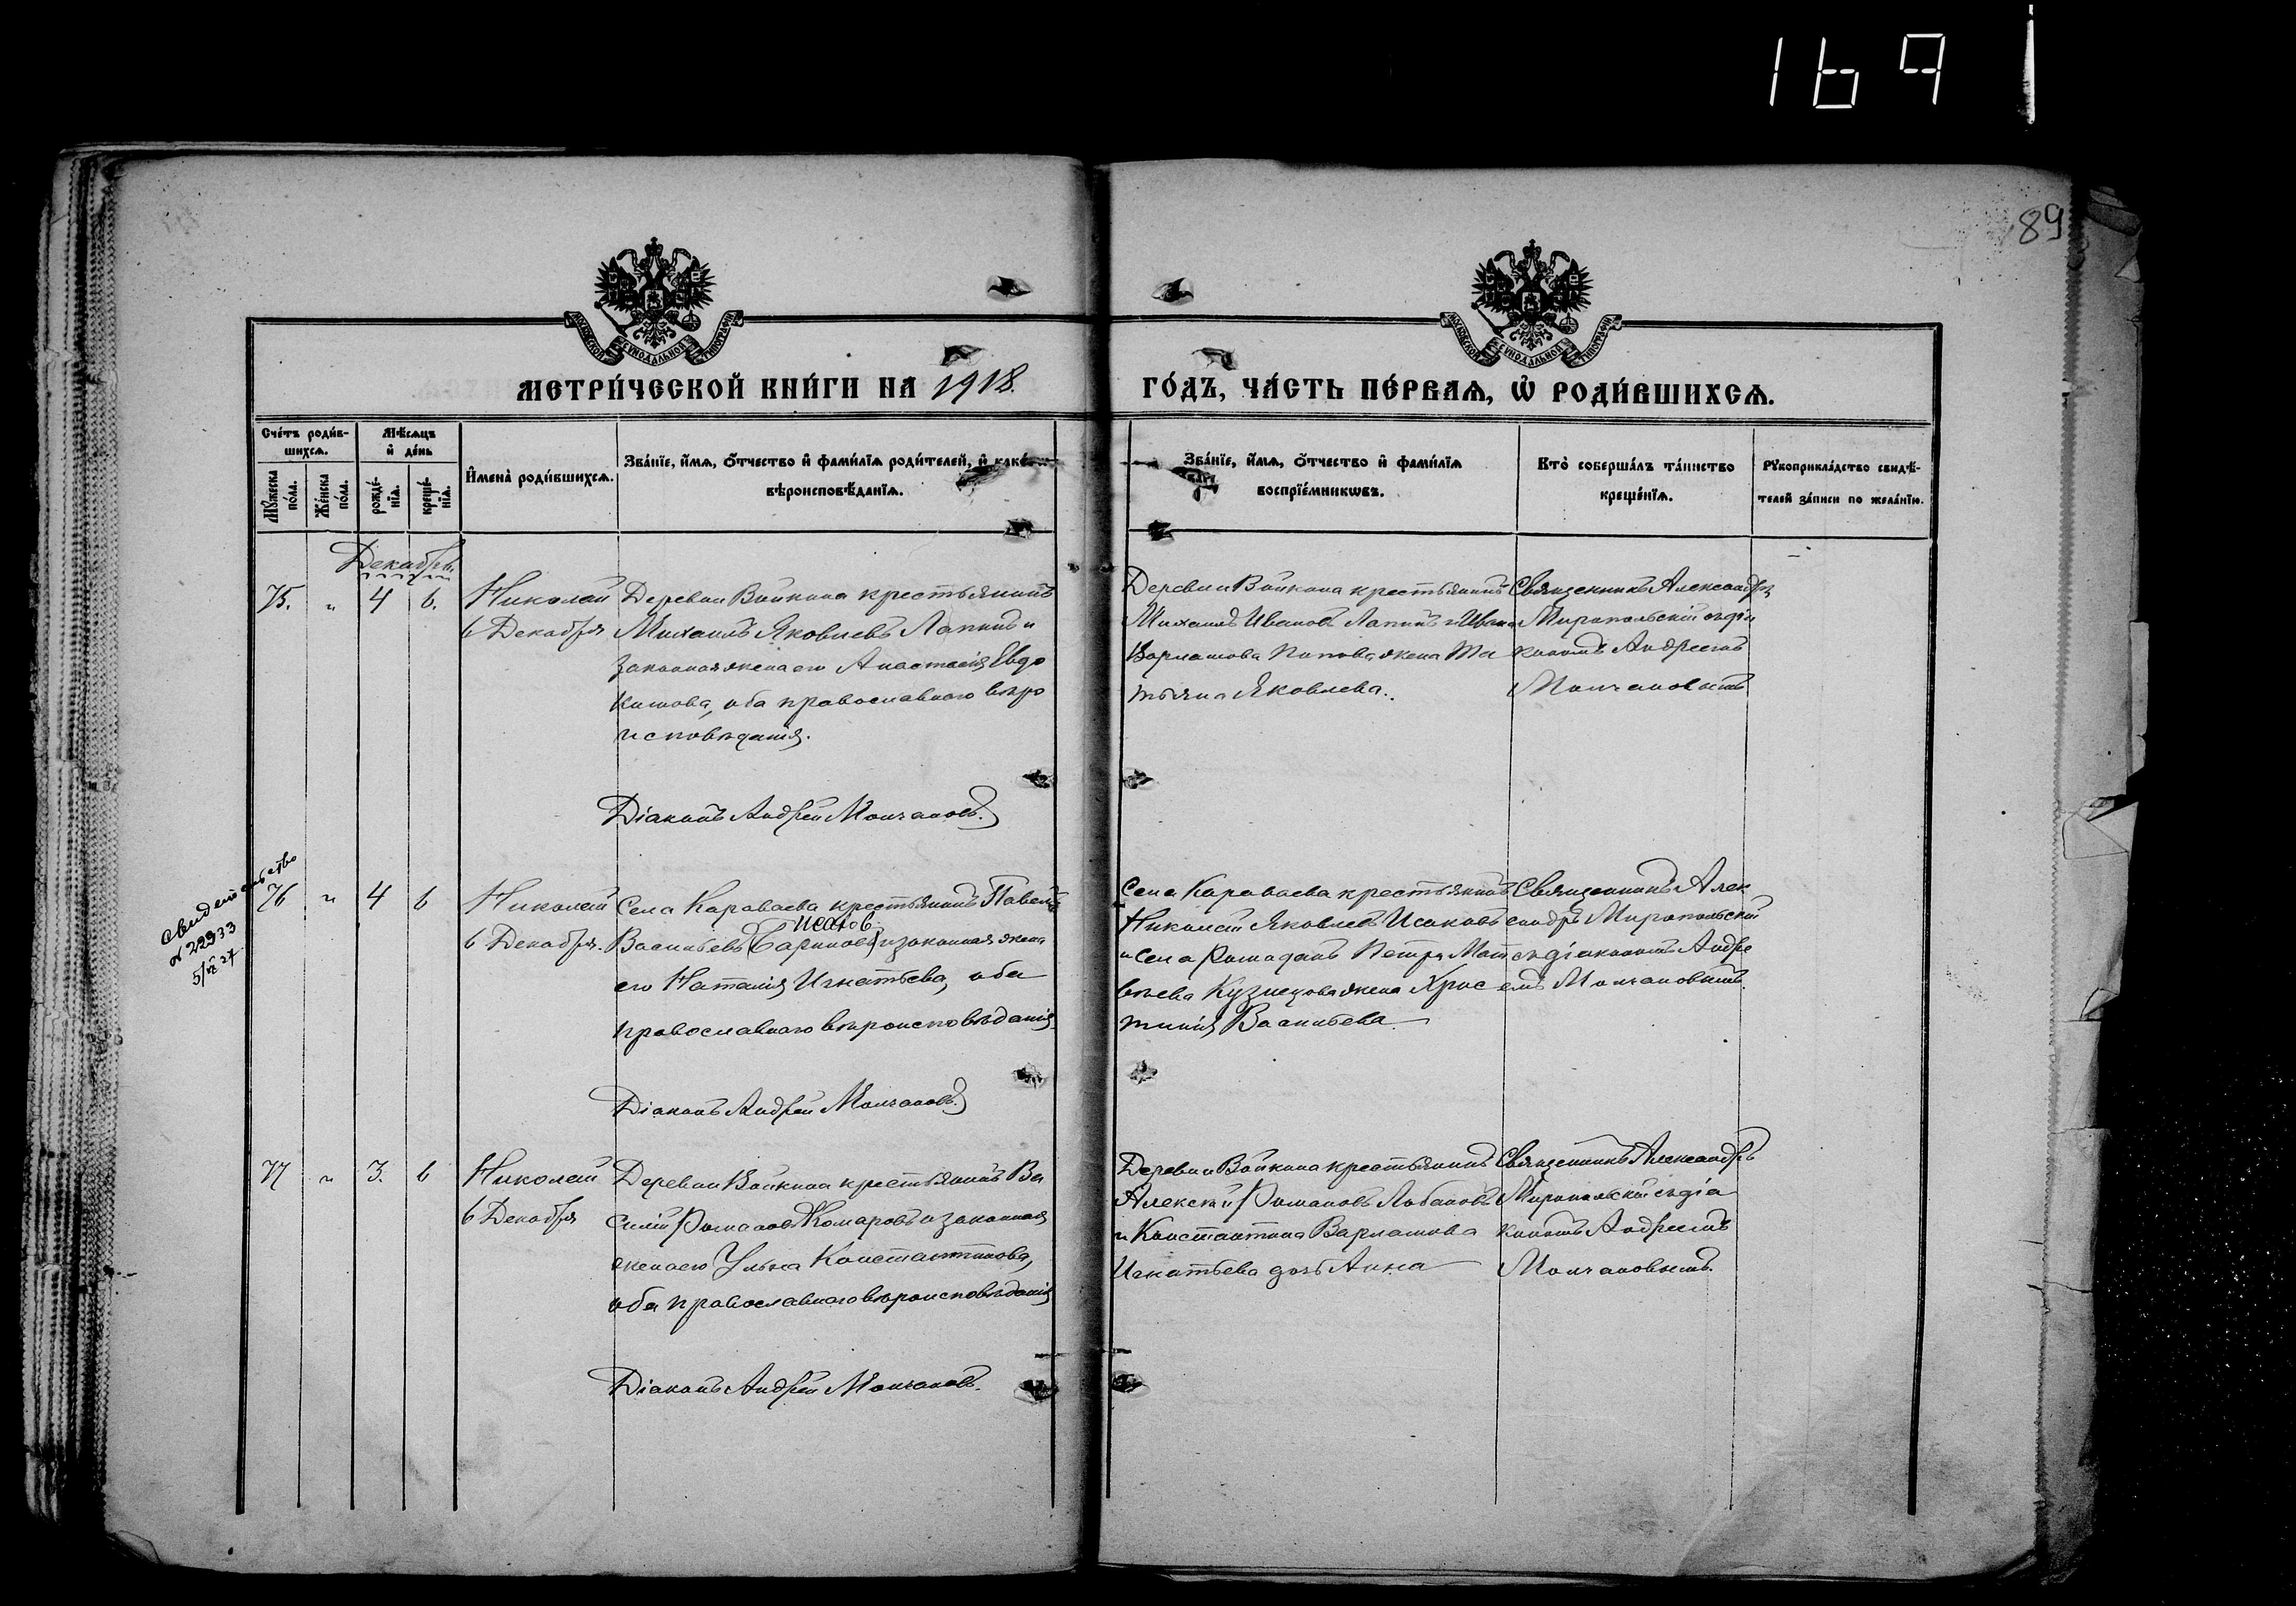 1691
89
МОСКОВСКОЙ СУНОДАЛЬНОЙ ТИПОГРАФІИ
МОСКОВСКОЙ СУНОДАЛЬНОЙ ТИПОГРАФІИ
МЕТРИ́ЧЕСКОЙ КНИ́ГИ НА 1918.
ГО́ДЪ, ЧА́СТЬ ПЕ́РВАѦ, Ѽ РОДИ́ВШИХСѦ.
Сче́тъ роди́в-
шихсѧ.
Мꙋ́жеска по́ла.
Же́нска по́ла.
Мѣ́сѧцъ
и҆ де́нь
рожде́-нїѧ.
креще́-нїѧ.
И҆мена̀ роди́вшихсѧ.
Зва́нїе, и҆́мѧ, ѻ҆́тчество и҆ фами́лїѧ роди́телей, и҆ како́го
вѣроисповѣ́данїѧ.
Зва́нїе, и҆́мѧ, ѻ҆́тчество и҆ фами́лїѧ
воспрїе́мникѡвъ.
Кто̀ соверша́лъ та́инство
креще́нїѧ.
Рꙋкоприкла́дство свидѣ́-
телей за́писи по жела́нїю.
Декабрь.
75. " 4 6.
Николай
6 Декабря
Деревни Войкина крестьянинъ
Михаилъ Яковлевъ Лапинъ и
законная жена его Анастасія Евдо
кимова, оба православнаго вѣро
исповѣданія.
Діаконъ Андрей Молчановъ.
Деревни Войкина крестьянинъ
Михаилъ Ивановъ Лапинъ и Ивана
Варламова Попова жена Та
тьяна Яковлева.
Священникъ Александръ
Миропольскій съ діа
кономъ Андреемъ
Молчановымъ
Свидетельство
№ 22933
5/VI 27
76 " 4 6
Николай
6 Декабря.
Села Караваева крестьянинъ Павелъ
Исаков
Васильевъ (Бариновъ) и законная жена
его Наталія Игнатьева, оба
православнаго вѣроисповѣданія.
Діаконъ Андрей Молчановъ.
Села Караваева крестьянинъ
Николай Яковлевъ Исаковъ
и села Ромаданъ Петра Мат
вѣева Кузнецова жена Хрис
тинія Васильева
Священникъ Алек
сандръ Миропольскій
съ діакономъ Андре
емъ Молчановымъ.
77 " 3. 6
Николай
6 Декабря
Деревни Войкина крестьянинъ Ва
силій Романовъ Комаровъ и законная
жена его Ульяна Константинова,
оба православнаго вѣроисповѣданія
Діаконъ Андрей Молчановъ.
Деревни Войкина крестьянинъ
Алексѣй Романовъ Лобановъ
и Константина Варламова
Игнатьева дочь Анна
Священникъ Александръ
Миропольскій съ діа
кономъ Андреемъ
Молчановымъ.